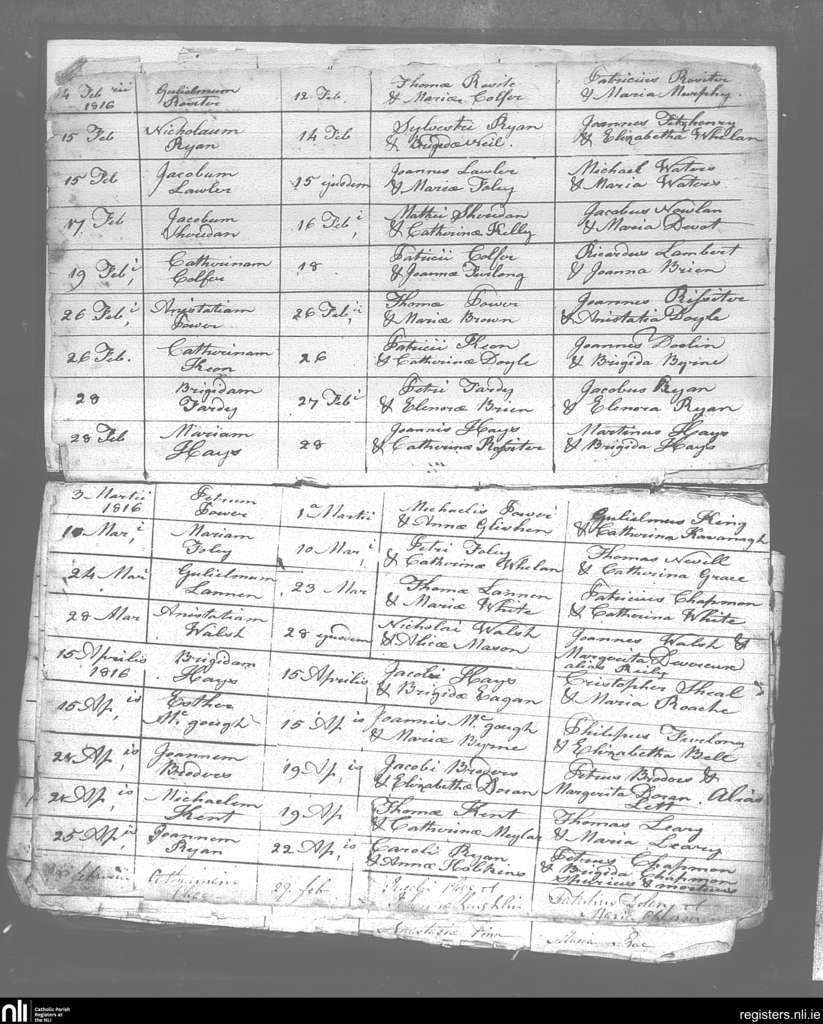 14 Feb rii Gulielmum 12 Feb. Thomæ Rositer Patricius Rositer
1816 Rositer & Mariæ Colfer & Maria Murphy.
15 Feb Nicholaum 14 Feb Sylvestri Ryan Joannes Fitzhenry
Ryan & Brigidæ Neil. & Elizabetha Whelan
15 Feb Jacobum 15 ejusdem Joannis Lawler Michael Waters
Lawler & Mariæ Foley & Maria Waters
17 Feb Jacobum 16 Feb i, Mathei Sheridan Jacobus Nowlan
Sheridan & Catherinæ Kelly & Maria Devot
19 Feb i, Catherinam 18 Patricii Colfer Ricardus Lambert
Colfer & Joannæ Furlong & Joanna Brien
26 Feb i, Anistatiam 26 Feb i, Thomæ Power Joannes Rossiter
Power & Mariæ Brown & Anistatia Doyle
26 Feb. Catherinam 26 Patricii Keon Joannes
Keon & Catherinæ Doyle & Brigida Byrne
28 Brigidam 27 Feb i Petri Fardy Jacobus Ryan
Fardy & Elenoræ Brien & Elenora Ryan
28 Feb Mariam 28 Joannis Hays Martinus Hays
Hays & Catherinæ Rossiter & Brigida Hays
3 Martii Petrum 1a Martii Michaelis Power Gulielmus King
1816 Power & Annæ & Catherina Kavanagh
10 Mar, i Mariam 10 Mar i, Petri Foley Thomas Nevell
Foley & Catherinæ Whelan & Catherina Grace
24 Mar i Gulielmum 23 Mar Thomæ Lannon Patricius Chapman
Lannen & Mariæ White & Catherina White
28 Mar Anistatiam 28 ejusdem Nicholai Walsh Joannes Walsh &
Walsh & Aliciæ Mason Margarita Devereux
alias Reily
15 Aprilis Brigidam 15 Aprilis Jacobi Hays Cristopher Sheal
1816 Hays & Brigidæ Eagan & Maria Roache
15 Ap, is Esther 15 Ap is Joannis Mc gough Philipus Furlong
Mc gough & Mariæ Byrne & Elizabetha Bell
24 Ap, is Joannem 19 Ap, is Jacobi Broders Petrus Broders &
Broders & Elizabethæ Doran Margerita Doran Alias
Lett
24 Ap, is Michaelem 19 Ap Thomæ Kent Thomas Leary
Kent & Catherinæ Meylar & Maria Leary
25 Ap, is Joannem 22 Ap, is Caroli Ryan Petrus Chapman
Ryan & Annæ Hotkens & Brigida Chapman
29. feb
Anastasia
Maria
nli
Catholic Parish
Registers at
the NLI
registers.nli.ie